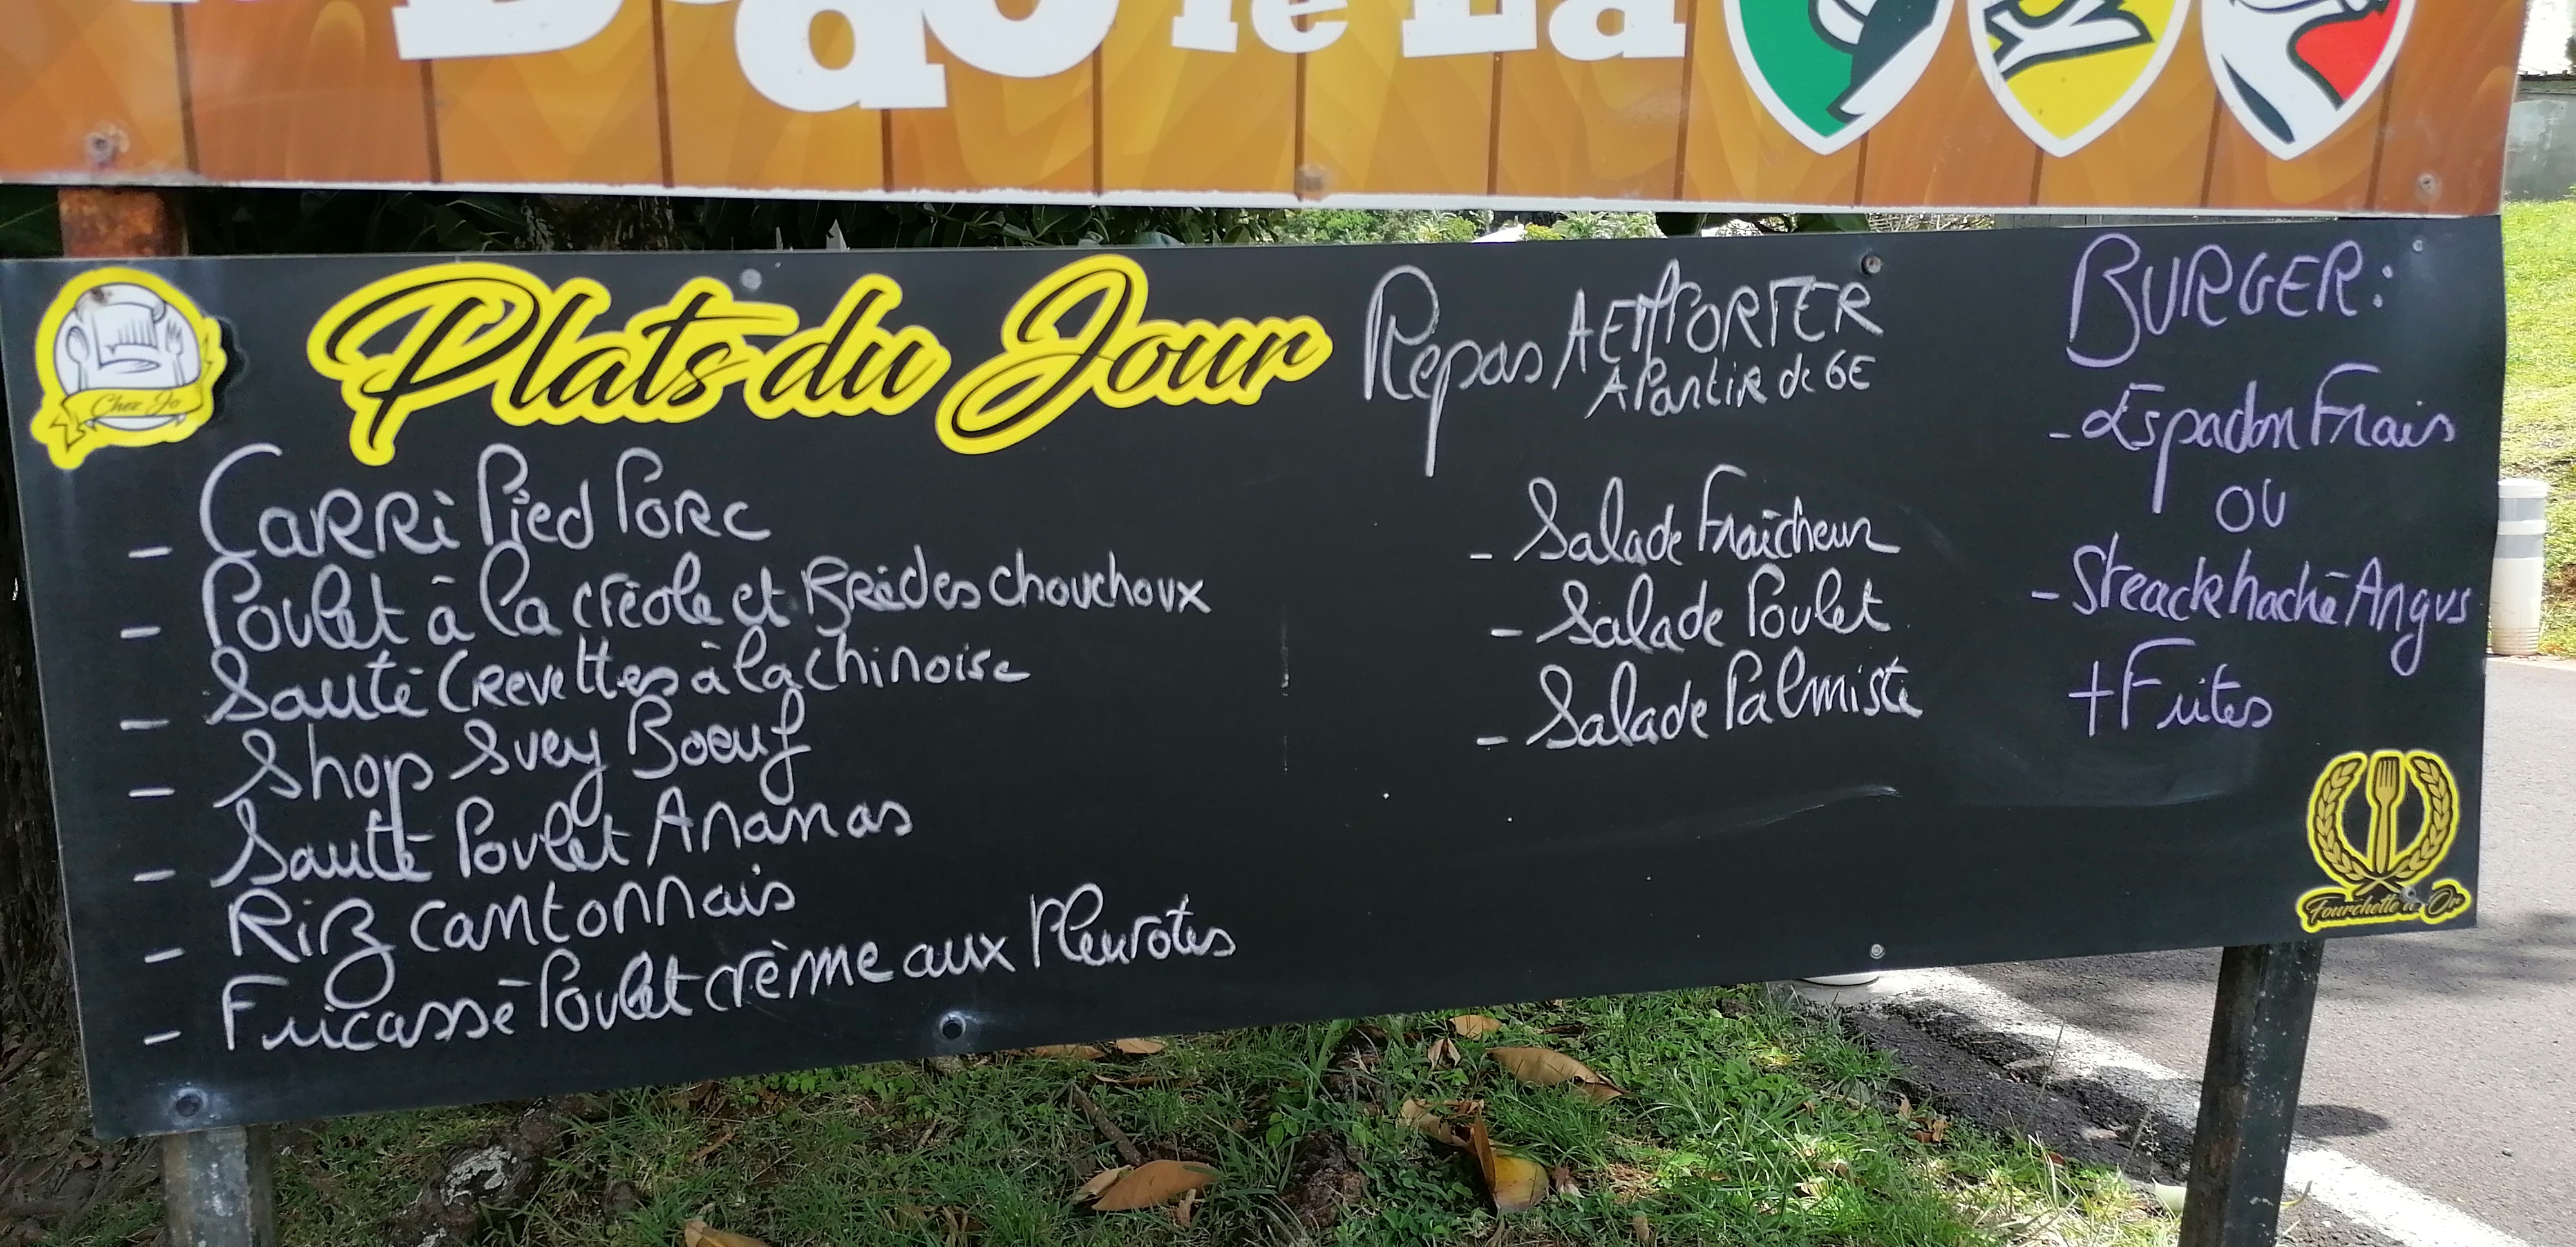 le La
Chez Jo
Plats du Jour
- CARRi Pied Porc
- Poulet à la créole et Brèdes chouchoux
- Sauté Crevettes à la chinoise
- Shop Svey Boeuf
- Sauté Poulet Ananas
- Riz cantonnais
- Fricassé Poulet crème aux Pleurotes
Repas A EMPORTER
A Partir de 6E
- Salade Fraîcheur
- Salade Poulet
- Salade Palmiste
BURGER:
- Espadon Frais
OU
- Steack haché Angus
+ Frites
Fourchette d'Or